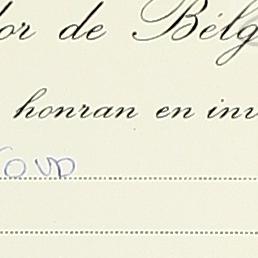 dor de Bélg
honran en inv